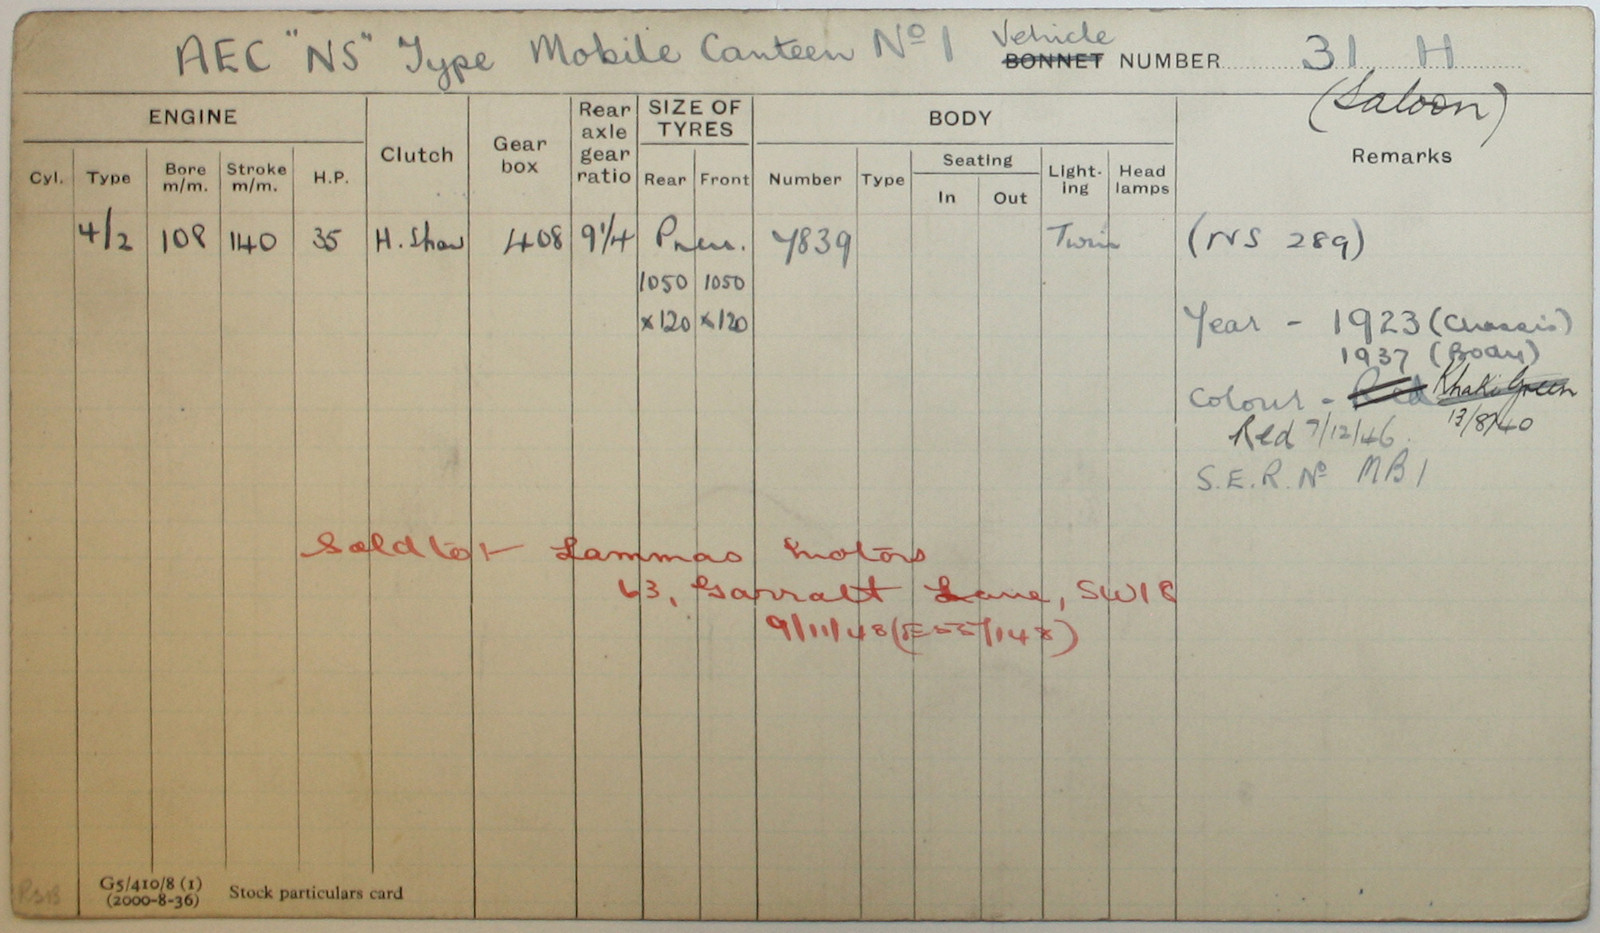 AEC "NS" Type Mobile Canteen Nº 1 Vehicle BONNET NUMBER 31 H
(Saloon)
ENGINE
Clutch
Gear box
Rear axle gear ratio
SIZE OF TYRES
BODY
Remarks
Cyl.
Type
Bore m/m.
Stroke m/m.
H.P.
Rear
Front
Number
Type
Seating
In
Out
Light-ing
Head lamps
4/2 108 140 35 H. Shaw 408 9¼ Pneu. 7839 Twin (NS 289)
1050 1050
×120 ×120
Year - 1923 (Chassis)
1937 (Body)
Colour - Red Khaki Green
13/8/40
Red 7/12/46.
S.E.R. Nº MB1
Sold to :- Lammas Motors
63, Garratt Lane, SW18
9/11/48 (E55/148)
G5/410/8 (1)
(2000-8-36)
Stock particulars card